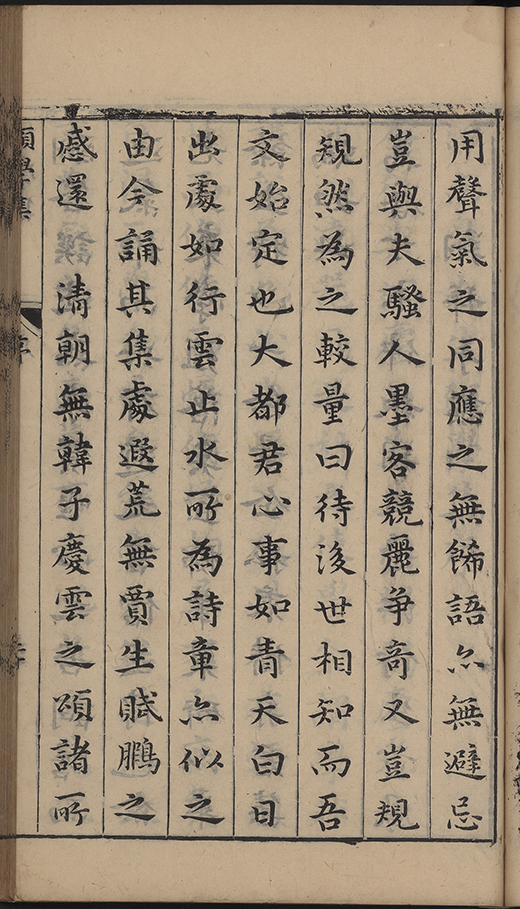 用聲氣之同應之無餙語亦無避忌
豈與夫騷人墨客競麗争奇又豈規
規然為之較量曰待後世相知而吾
文始定也大都君心事如青天白日
出處如行雲止水所為詩章亦似之
由今誦其集處遐荒無賈生賦鵩之
慼還清朝無韓子慶雲之頌諸所
學集
序